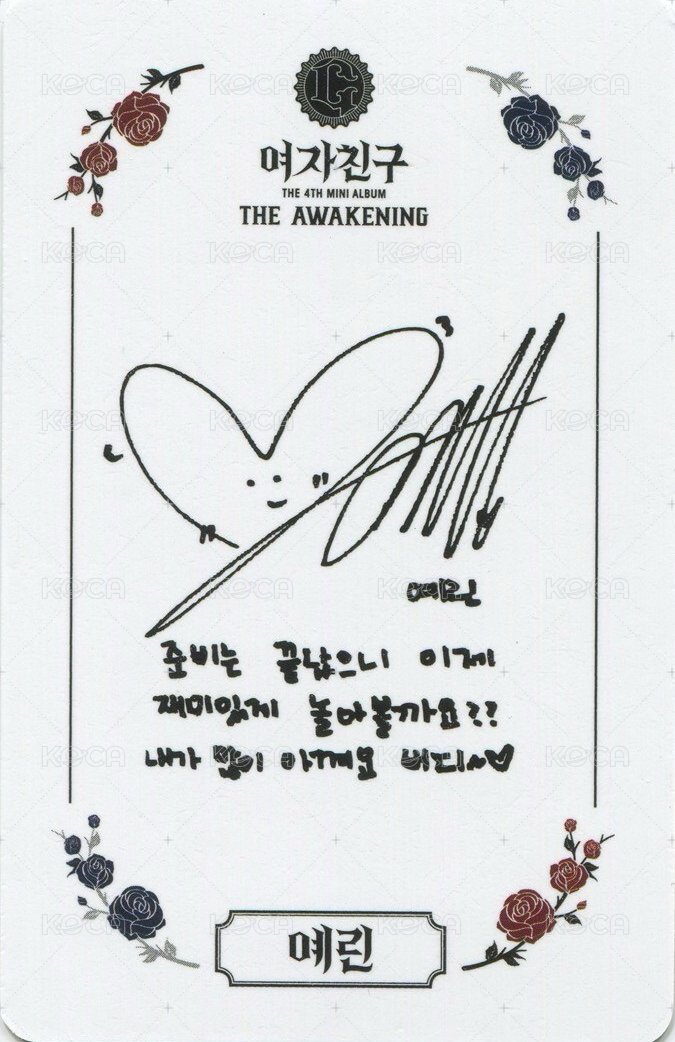 여자친구
THE 4TH MINI ALBUM
THE AWAKENING
예린
준비는 끝났으니 이제
재미있게 놀아볼까요??
내가 많이 아껴요 버디~♡
예린
KOCA